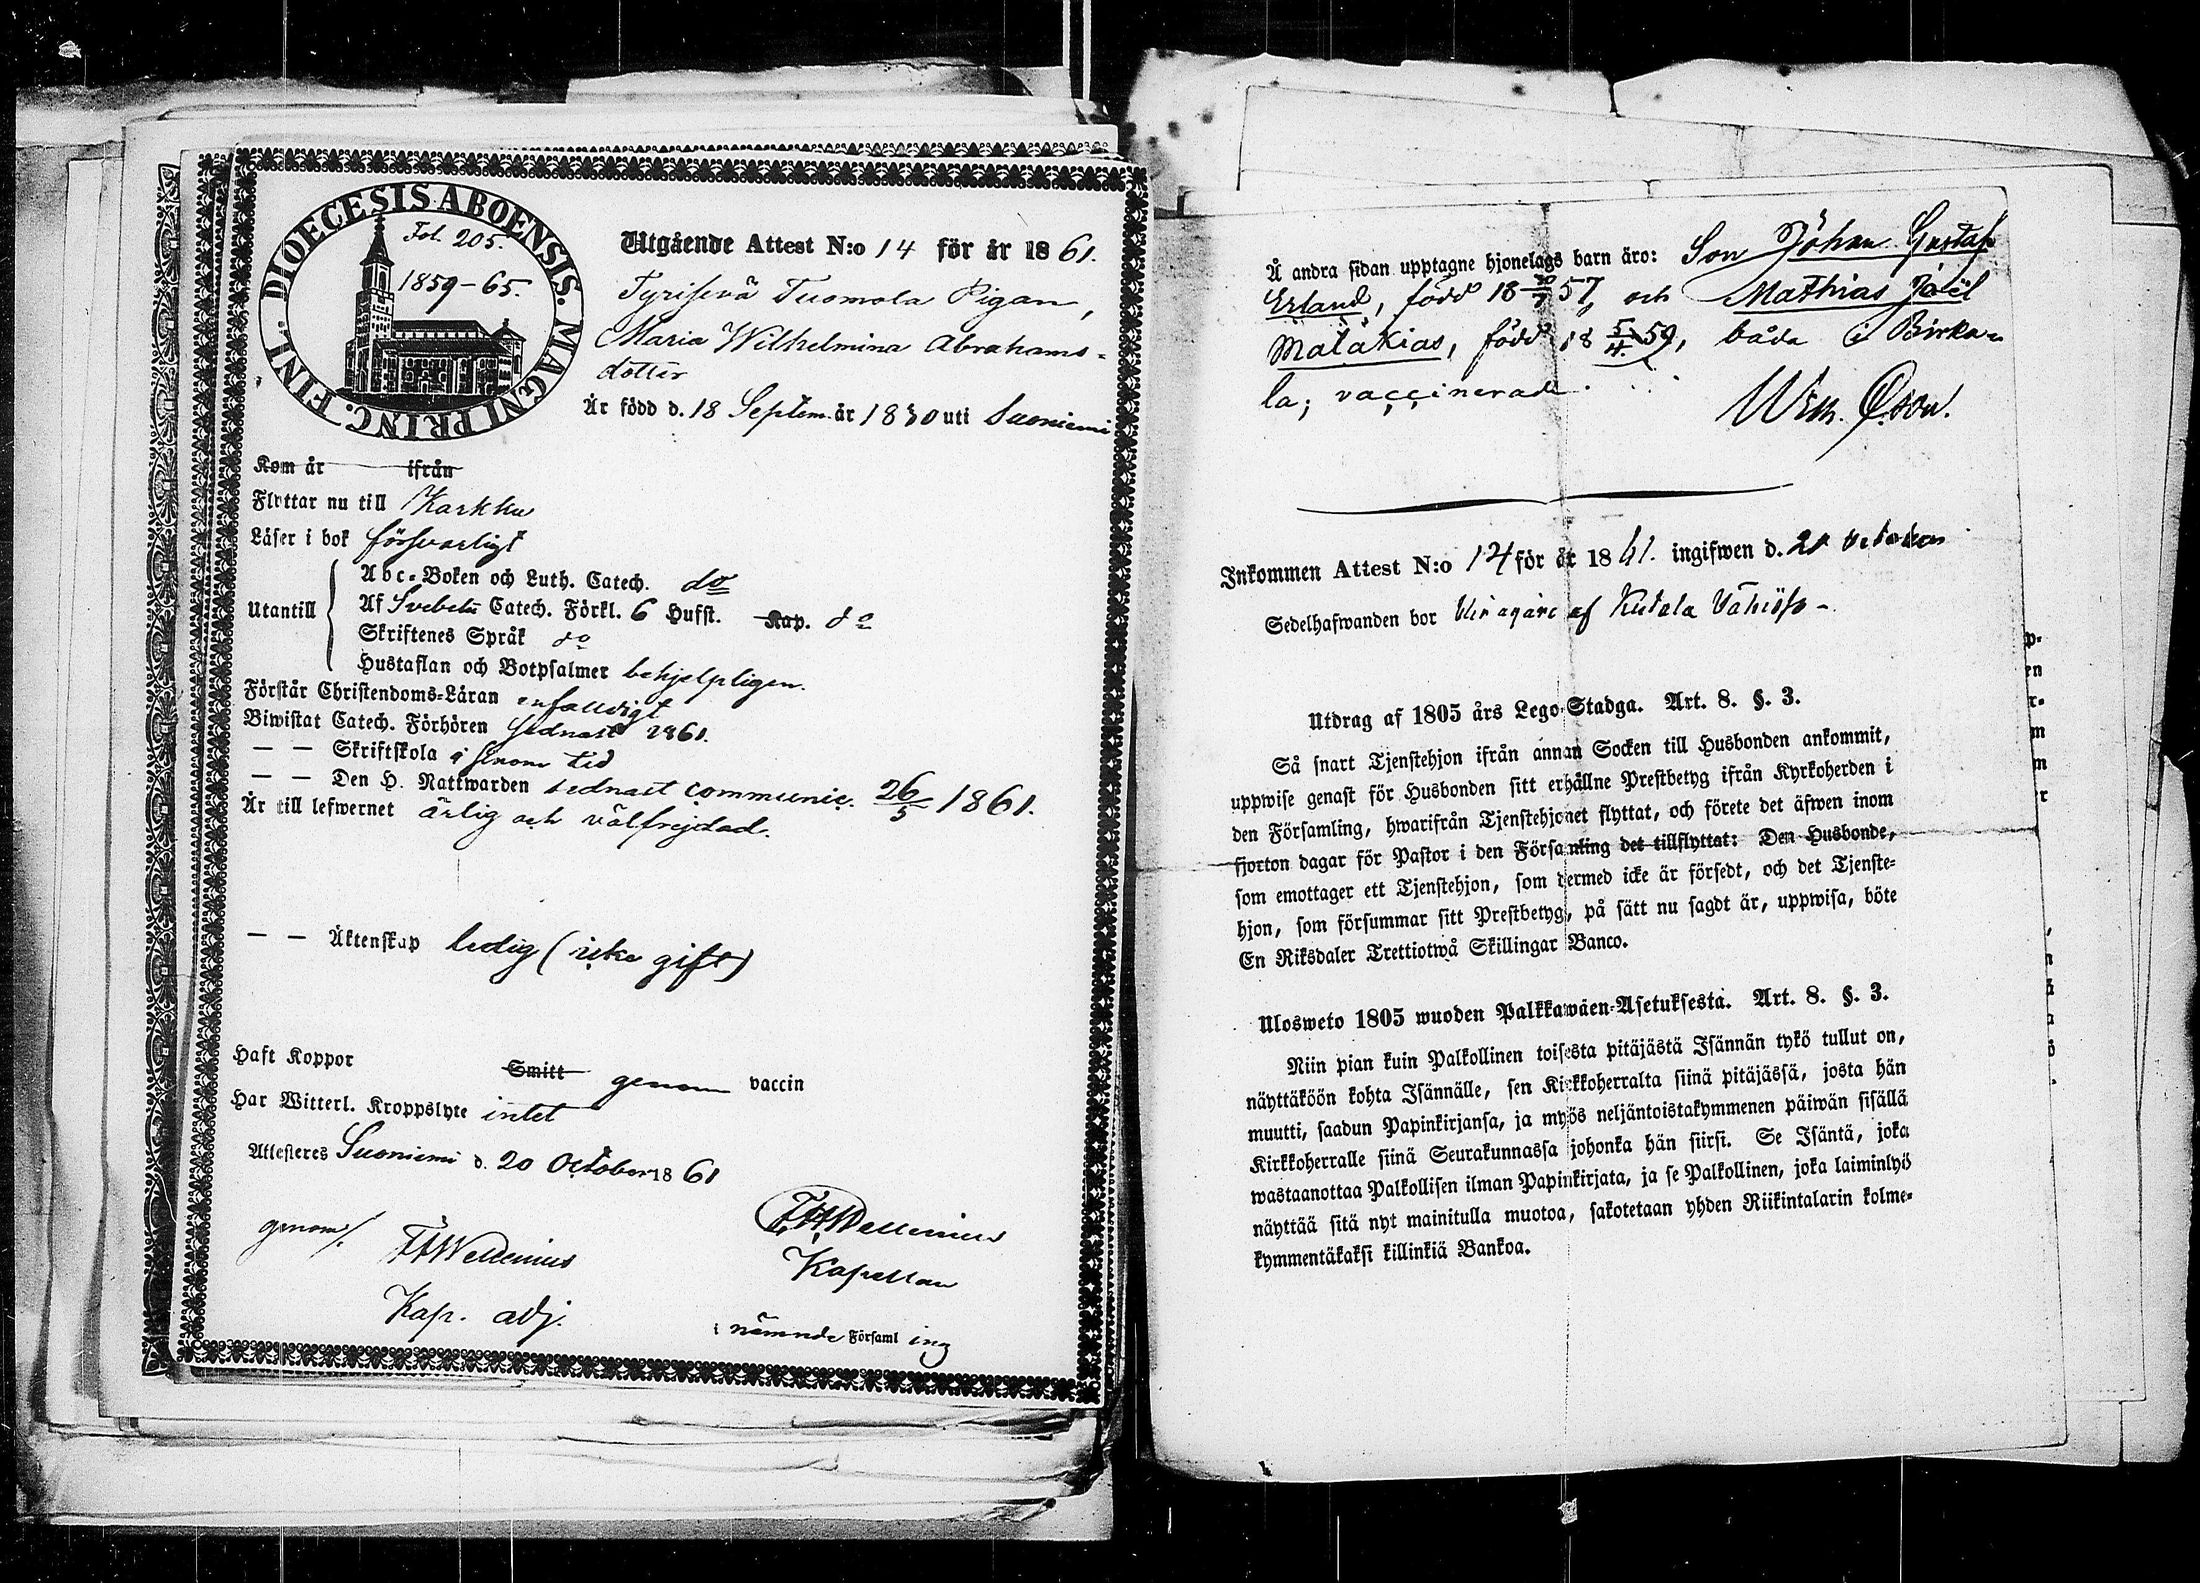 DIOECESIS ABOENSIS. MAGNI PRINC. FINL.
Fol. 205.
1859-65.
Utgående Attest N:o 14 för år 1861.
Tyrisevä Tuomola Pigan,
Maria Wilhelmina Abrahams-
dotter
Är född d. 18 Septem. år 1830 uti Suoniemi
Kom år ifrån
Flyttar nu till Karkku
Läser i bok försvarligt
Utantill
Abc-Boken och Luth. Catech. do
Af Svebelii Catech. Förkl. 6 Hufst. Kap. do
Skriftenes Språk do
Hustaflan och Botpsalmer behjelpligen.
Förstår Christendoms-Läran enfaldigt
Biwistat Catech. Förhören sednast 1861.
— — Skriftskola i sinom tid
— — Den H. Nattwarden sednast communic. 26/5 1861.
Är till lefwernet ärlig och välfrejdad.
— — Äktenskap ledig (icke gift)
Haft Koppor Smitt genom vaccin
Har Witterl. Kroppslyte intet
Attesteres Suoniemi d. 20 October 1861
genom/.
FHWellenius
Kap. adj.
FHWellenius
Kapellan
i nämnde Församl ing
Å andra sidan upptagne hjonelags barn äro: Son Johan Gustaf
Erland, född 18 30/7 57, och Mathias Joël
Malakias, född 18 5/4 59, båda i Birka-
la; vaccinerade.
Inkommen Attest N:o 14 för år 1861. ingifwen d. 21 October
Sedelhafwanden bor af Kutala
Utdrag af 1805 års Lego-Stadga. Art. 8. §. 3.
Så snart Tjenstehjon ifrån annan Socken till Husbonden ankommit,
uppwise genast för Husbonden sitt erhållne Prestbetyg ifrån Kyrkoherden i
den Församling, hwarifrån Tjenstehjonet flyttat, och förete det äfwen inom
fjorton dagar för Pastor i den Församling det tillflyttat: Den Husbonde,
som emottager ett Tjenstehjon, som dermed icke är försedt, och det Tjenste-
hjon, som försummar sitt Prestbetyg, på sätt nu sagdt är, uppwisa, böte
En Riksdaler Trettiotwå Skillingar Banco.
Ulosweto 1805 wuoden Palkkawäen-Asetuksesta. Art. 8. §. 3.
Niin pian kuin Palkollinen toisesta pitäjästä Isännän tykö tullut on,
näyttäköön kohta Isännälle, sen Kirkkoherralta siinä pitäjässä, josta hän
muutti, saadun Papinkirjansa, ja myös neljäntoistakymmenen päiwän sisällä
Kirkkoherralle siinä Seurakunnassa johonka hän siirsi. Se Isäntä, joka
wastaanottaa Palkollisen ilman Papinkirjata, ja se Palkollinen, joka laiminlyö
näyttää sitä nyt mainitulla muotoa, sakotetaan yhden Riikintalarin kolme-
kymmentäkaksi killinkiä Bankoa.